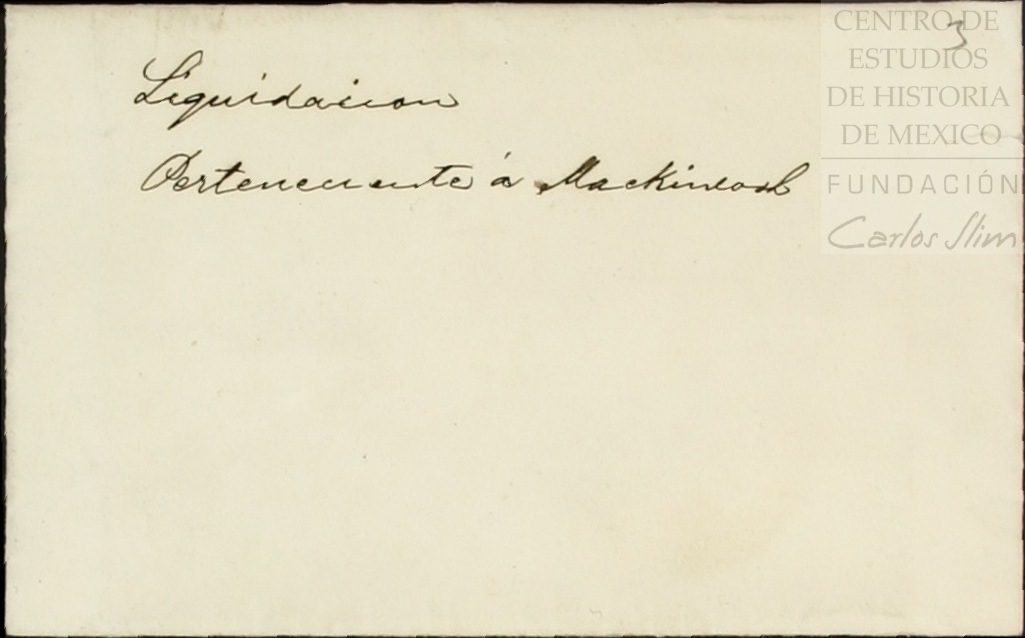 3
Liquidacion
Perteneciente á Mackintosh
CENTRO DE
ESTUDIOS
DE HISTORIA
DE MEXICO
FUNDACIÓN
Carlos Slim